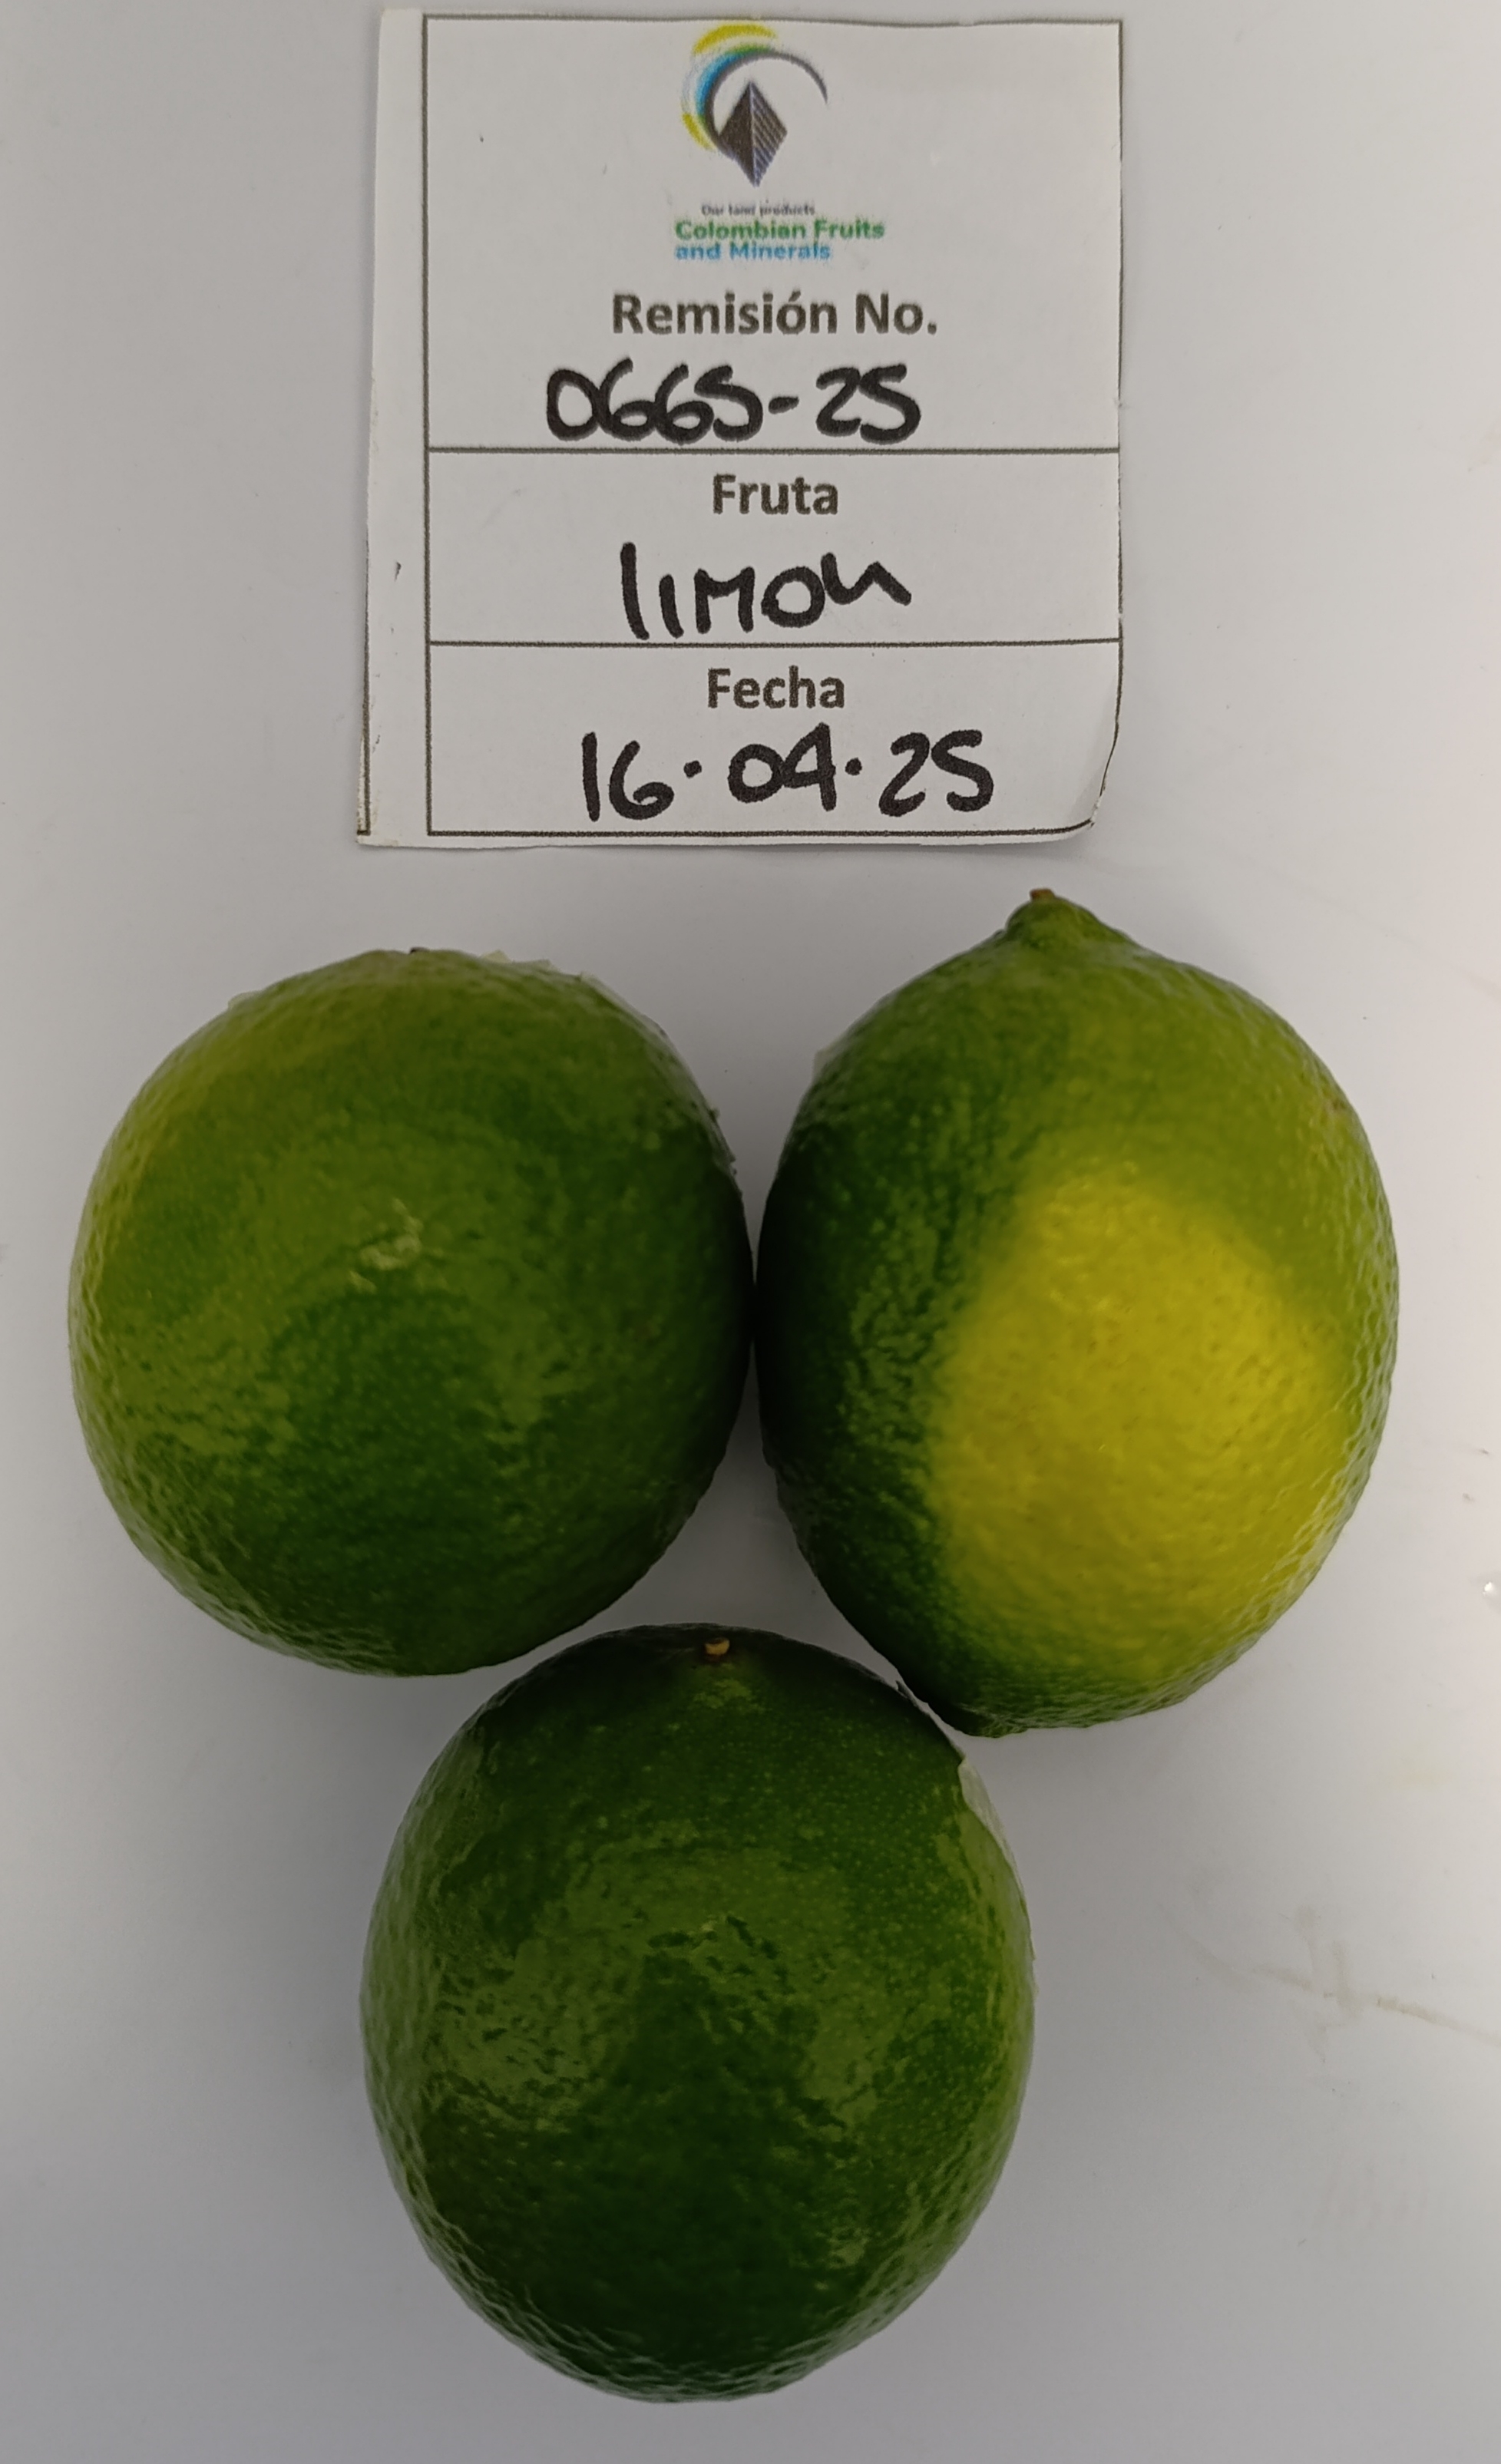 Our land products
Colombian Fruits
and Minerals
Remisión No.
0665-25
Fruta
limon
Fecha
16.04.25